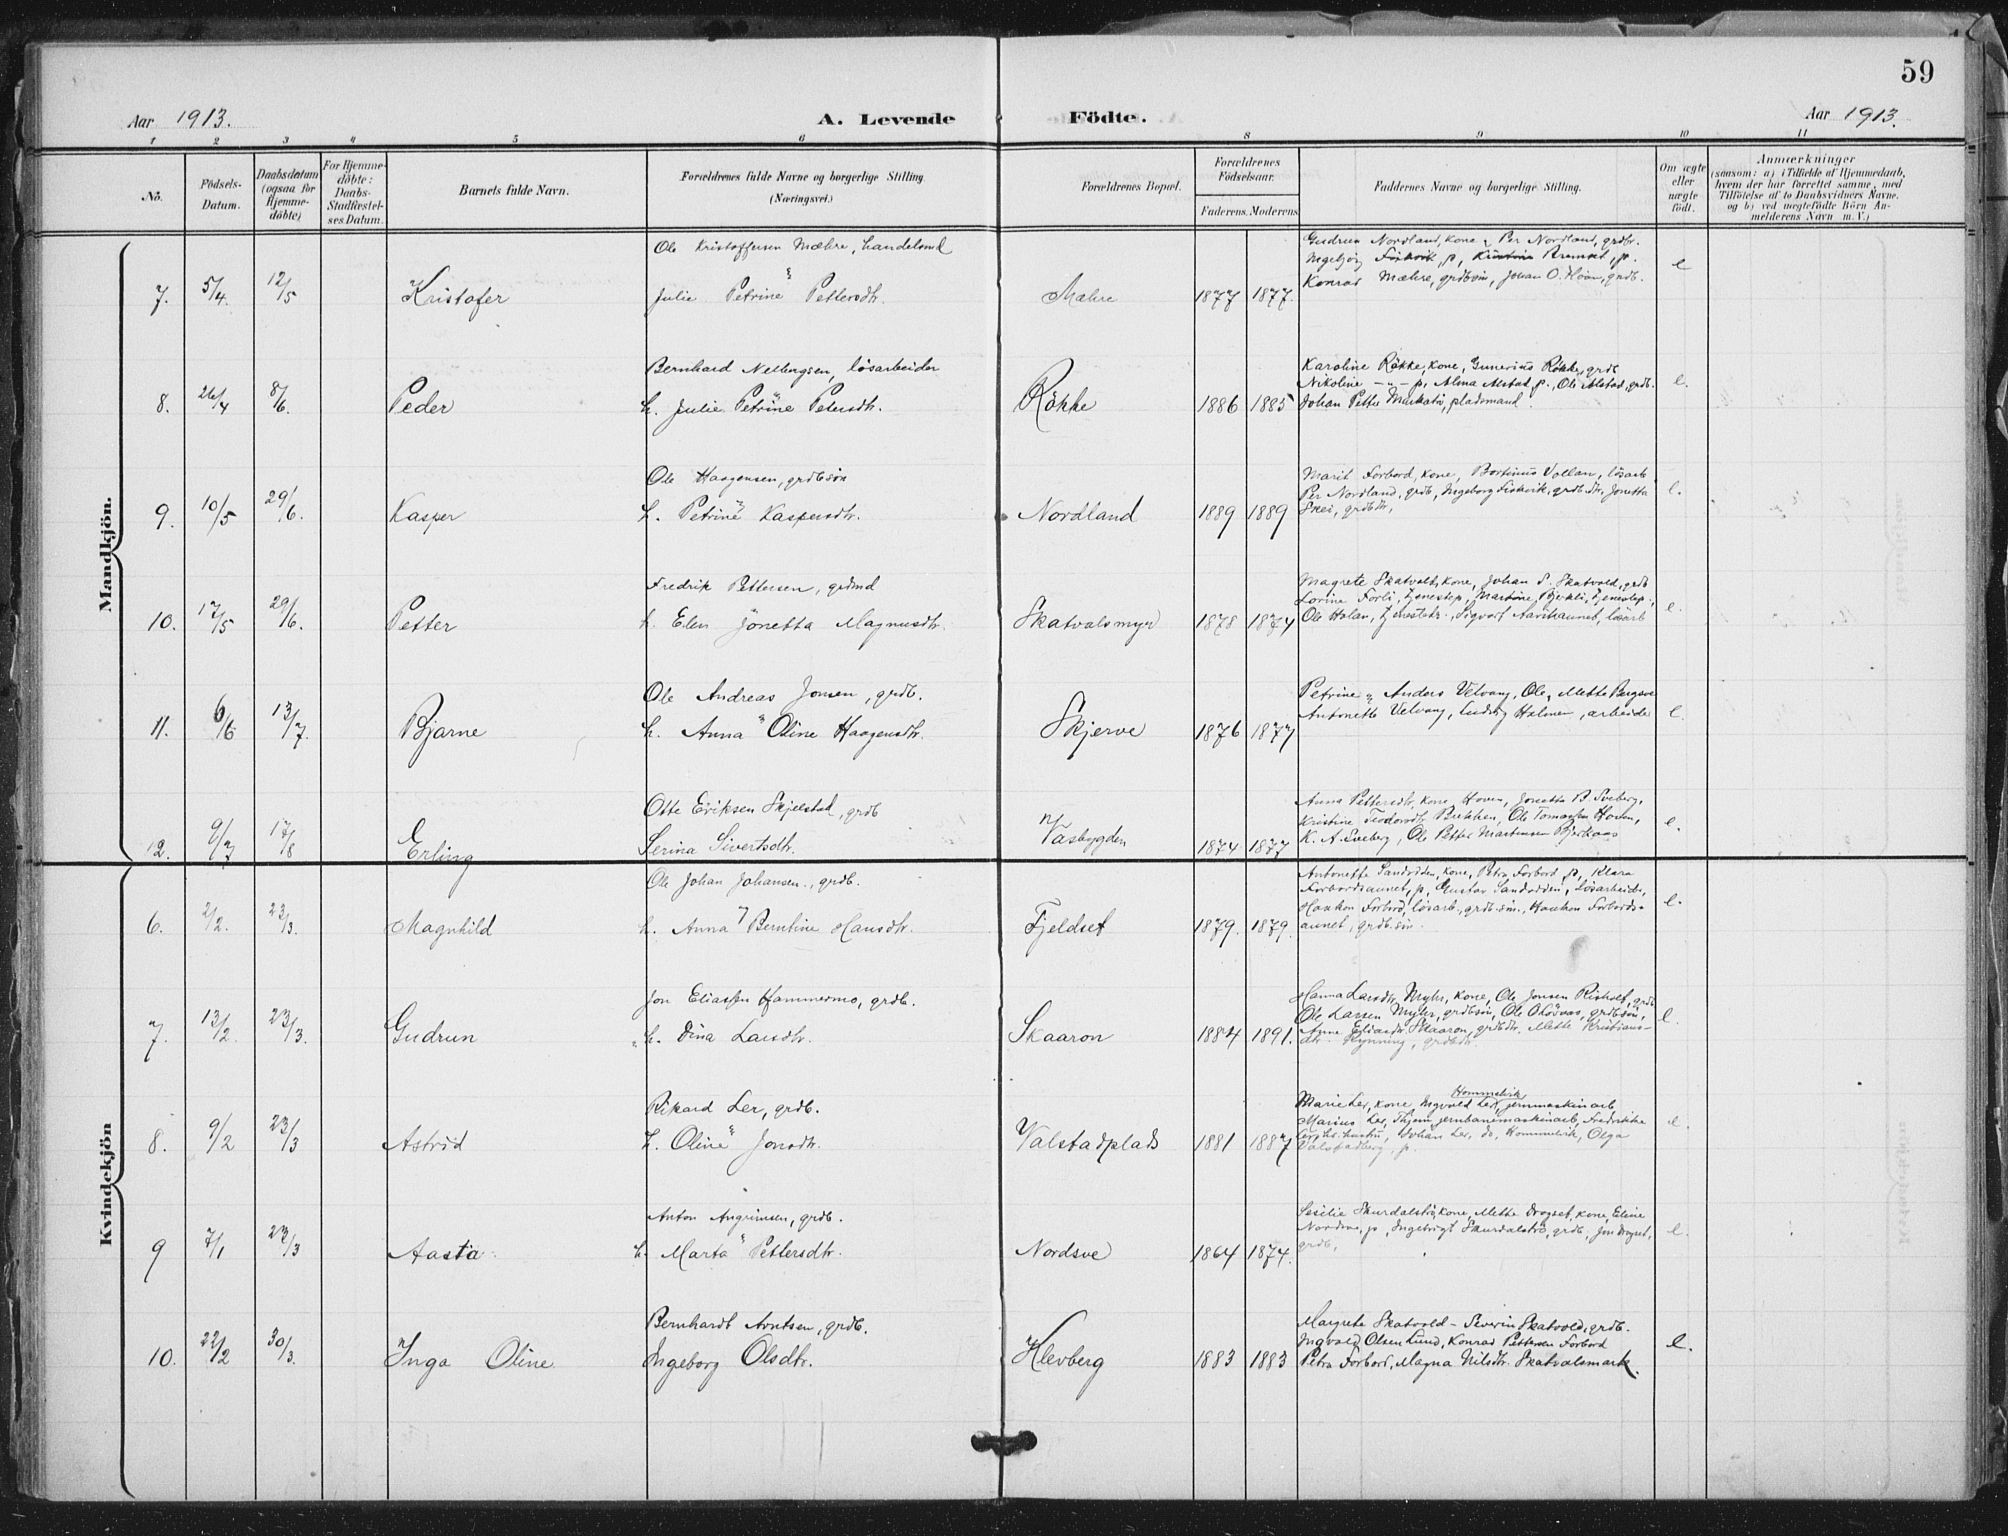 59
Aar 1913. A. Levende Födte. Aar 1913.
1 2 3 4 5 6 8 9 10 11
No. Födsels-Datum. Daabsdatum (ogsaa for Hjemme-döbte) For Hjemme-döbte: Daabs-Stadfæstel-ses Datum. Barnets fulde Navn. Forældrenes fulde Navne og borgerlige Stilling (Næringsvei.) Forældrenes Bopæl. Forældrenes Födselsaar. Faderens. Moderens Faddernes Navne og borgerlige Stilling. Om ægte eller uægte födt. Anmærkninger (saasom: a) i Tilfælde af Hjemmedaab, hvem der har forrettet samme, med Tilföielse af to Daabsvidners Navne, og b) ved uægtefödte Börn Anmelderens Navn m. V.)
Mandkjön.
Ole Kristoffersen Mæhre, handelsmd
Gudrun Nordland, kone, Per Nordland, grdbr.
Ingebjörg p, p.
Konrad Mæhre, grdbsön, Johan O. Hoven, grdb.
7. 5/4. 12/5 Kristofer Julie Petrine Pettersdtr. Mæhre 1877 1877. e
Bernhard Nelbergsen, lösarbeider
Karoline Rökke, kone, Gunerius Rökke, grdb
Nikoline -"- p, Alma Alstad p., Ole Alstad, grdb.
8. 26/4 8/6. Peder h. Julie Petrine Petersdtr. Rökke 1886 1885 Johan Petter pladsmand. e.
Ole Haagensen, grdbsön
Marit Forbord, kone, Bortinus Vollan, lösarb
Per Nordland, grdb, Ingeborg Fiskvik, grdb.dtr, Jonetta
9. 10/5 29/6. Kasper h. Petrine Kaspersdtr. Nordland 1889 1889 Skei, grdbdtr, e.
Fredrik Pettersen, grdmd
Magrete Skatvold, kone, Johan S. Skatvold, grdb
Lorine Forli, tjenestep, tjenestep.,
10. 17/5 29/6. Petter h. Elen Jonetta Magnusdtr. Skatvalsmyr 1878 1874 Ole Holan, Sigvart lösarb e.
Ole Andreas Jonsen, grdb.
Petrine, Anders Velvang, Ole, Mette Bergsve
Antonette Velvang, Ludvig Holmen, arbeide
11. 6/6 13/7. Bjarne h. Anna Oline Haagensdtr. Skjerve 1876 1877 e.
Otte Eriksen Skjelstad, grdb
Anna Pettersdtr, kone Hoven, Jonetta B. Sveberg,
Kristine Brekken, Ole Hoven,
12. 9/7 17/8 Erling Serina Sivertsdtr. Vasbygden 1874 1877 K. A. Sveberg, Ole Petter Martinsen e.
Kvindekjön
Ole Johan Johansen, grdb.
Antonette kone, Petra Forbord p, Klara
Forbordsaunet, p, Gustav lösarbeider,
Haakon Forbord, lösarb., grdb.sön., Haakon Forbords-
6. 2/2. 23/3. Magnhild h. Anna Berntine Hansdtr. Fjeldset 1879. 1879. aunet, grdb.sön. e.
Jon Eliassen Hammermo, grdb.
Hanna Larsdtr. Myhr, kone, Ole Jonsen grdb
Ole Larsen Myhr, grdbsön, Ole grdbsön,
Anne Eliasdtr. Skaaron, grdbdtr. Mette Kristians-
7. 13/2 23/3. Gudrun h. Dina Larsdtr. Skaaron 1884 1891. dtr. Rynning, grdbdtr. e.
Rikard Ler, grdb.
Hommelvik
Marie Ler, kone, Ingvald Ler, jernmaskinarb
Marius Ler, jernbanemaskinarb, Fredrikke
Ler, Johan Ler, do, Hommelvik, Olga
8. 9/2 23/3 Astrid h. Oline Jonsdtr. Valstadplads 1881 1887 Valstadberg, p. e.
Anton Angrimsen, grdb.
Sesilie kone, Mette Drogset, kone, Eline
Nordsve, p, Ingebrigt grdb, Jon Drogset,
9 7/1 23/3 Aasta h. Marta Pettersdtr. Nordsve 1864 1874. grdb, e.
Bernhardt Arntsen, grdb.
Margrete Skatvold - Severin Skatvold, grdb.
Ingvald Olsen Lund, Konrad Pettersen Forbord
10. 22/2 30/3. Inga Oline Ingeborg Olsdtr. Klevberg 1883 1883 Petra Forbord, Magna Nilsdtr. Skatvalsmark. e.